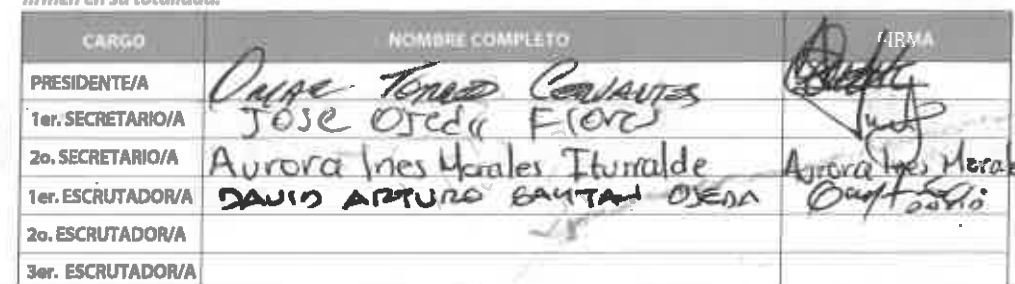 firmen en su totalidad.
CARGO NOMBRE COMPLETO FIRMA
PRESIDENTE/A OMAR TORRES CERVANTES
1er. SECRETARIO/A JOSE Ojeda Flores
2o. SECRETARIO/A Aurora Ines Morales Iturralde Aurora Ines Morale
1er. ESCRUTADOR/A DAVID ARTURO GAYTAN OJEDA
2o. ESCRUTADOR/A
3er. ESCRUTADOR/A